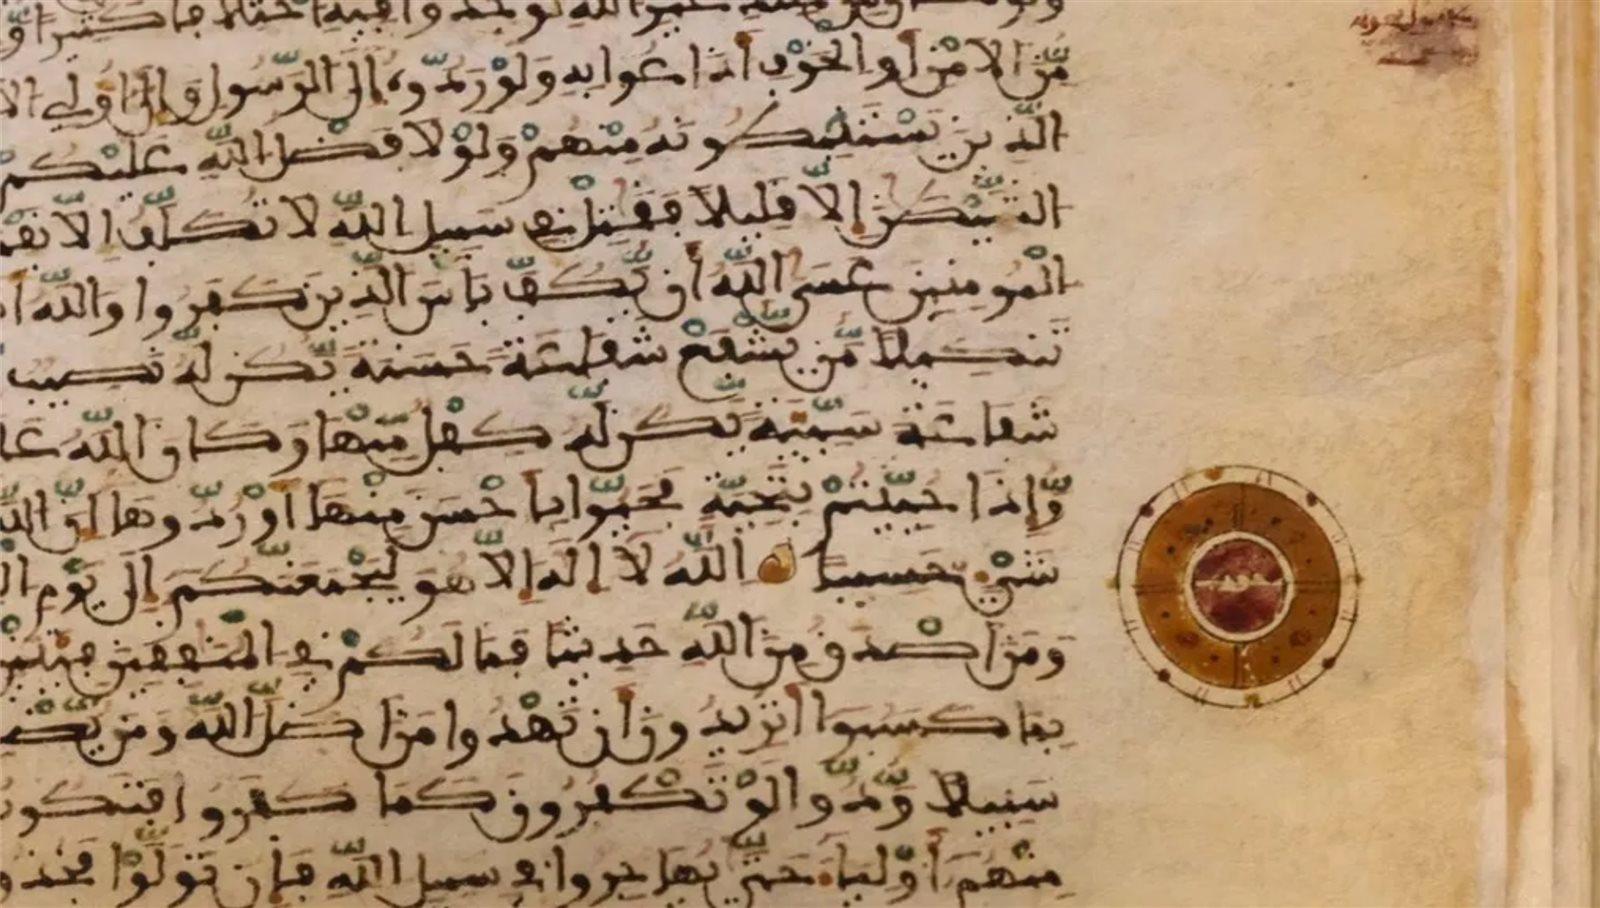 ولو كان من عند غير الله لوجدوا فيه اختلافا كثيرا و
مِّنَ الامْنِ أَوِ الْخَوْفِ أَذَاعُوا بِهِ وَلَوْ رَدُّوهُ إِلَى الرَّسُولِ وَإِلَى أُولِي الا
الَّذِينَ يَسْتَنْبِطُونَهُ مِنْهُمْ وَلَوْلَا فَضْلُ اللَّهِ عَلَيْكُمْ
الشَّيْطَنَ إِلَّا قَلِيلًا فَقَتِلْ فِي سَبِيلِ اللَّهِ لَا تُكَلَّفُ إِلَّا نَفْسَ
الْمُومِنِينَ عَسَى اللَّهُ أَن يَّكُفَّ بَأْسَ الَّذِينَ كَفَرُوا وَاللَّهُ أ
تَنكِيلًا مَّن يَّشْفَعْ شَفَعَةً حَسَنَةً يَّكُن لَّهُ نَصِيبٌ
شَفَاعَةً سَيِّئَةً يَّكُن لَّهُ كِفْلٌ مِّنْهَا وَكَانَ اللَّهُ عَلَ
وَإِذَا حُيِّيتُمْ بِتَحِيَّةٍ فَحَيُّوا بِأَحْسَنَ مِنْهَا أَوْ رُدُّوهَا إِنَّ اللَّ
شَيْءٍ حَسِيبًا اللَّهُ لَا إِلَهَ إِلَّا هُوَ لَيَجْمَعَنَّكُمْ إِلَى يَوْمِ ال
وَمَنْ أَصْدَقُ مِنَ اللَّهِ حَدِيثًا فَمَا لَكُمْ فِي الْمُنَفِقِينَ فِئَتَيْنِ
بِمَا كَسَبُوا أَتُرِيدُونَ أَن تَهْدُوا مَنْ أَضَلَّ اللَّهُ وَمَن يُّضْ
سَبِيلًا وَدُّوا لَوْ تَكْفُرُونَ كَمَا كَفَرُوا فَتَكُونُو
مِنْهُمْ أَوْلِيَاءَ حَتَّى يُهَاجِرُوا فِي سَبِيلِ اللَّهِ فَإِن تَوَلَّوْا فَخُذُو